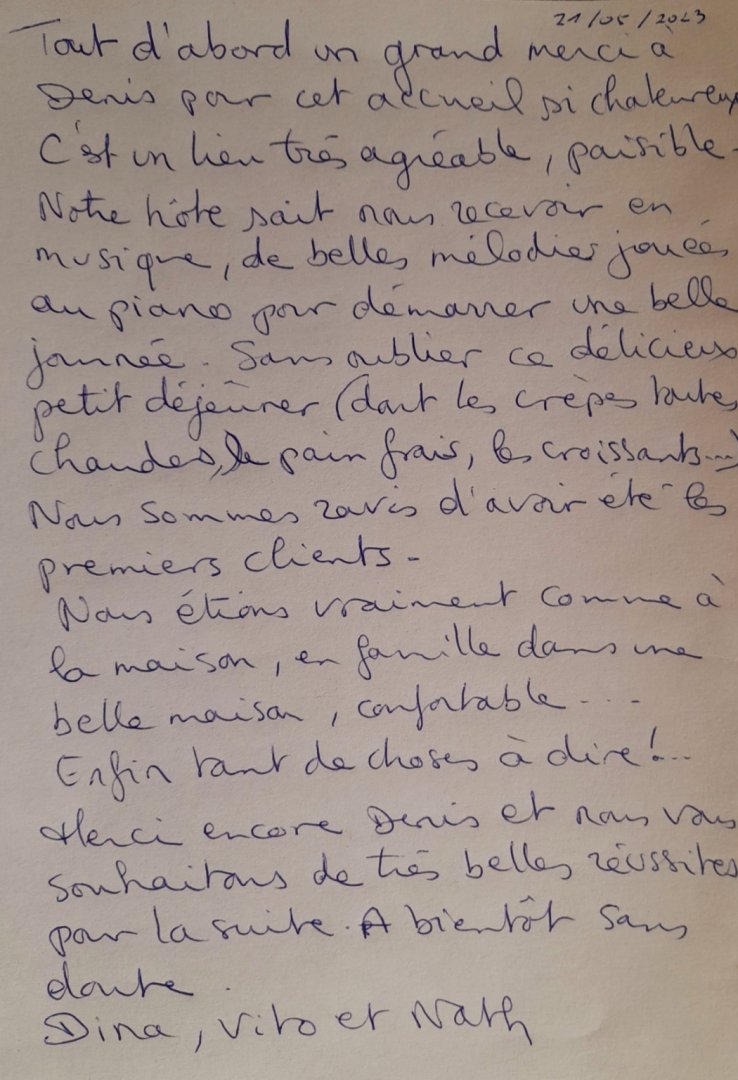 21/05/2023
Tout d'abord un grand merci à
Denis pour cet accueil si chaleureux
C'est un lieu très agréable, paisible.
Notre hôte sait nous recevoir en
musique, de belles mélodies jouées
au piano pour démarrer une belle
journée. Sans oublier ce délicieux
petit déjeûner (dont les crèpes toutes
chaudes, le pain frais, les croissants...)
Nous sommes ravis d'avoir été les
premiers clients.
Nous étions vraiment comme à
la maison, en famille dans une
belle maison, confortable...
Enfin tant de choses à dire!..
Merci encore Denis et nous vous
souhaitons de très belles réussites
pour la suite. A bientôt sans
doute.
Dina, Vito et Nath